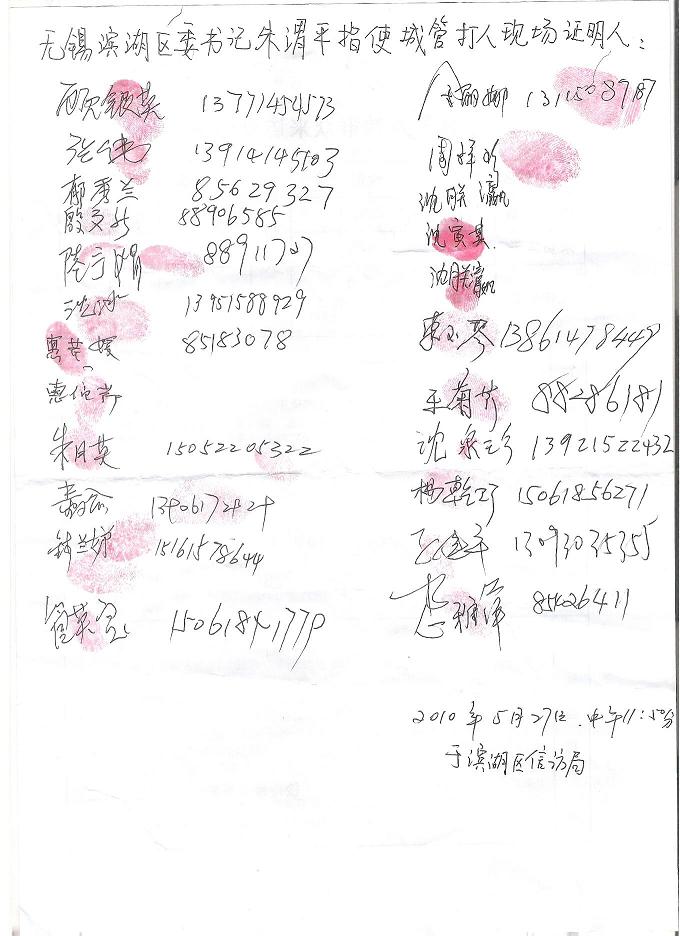 无锡滨湖区委书记朱渭平指使城管打人现场证明人：
银英 13771454573
13914145103
郁秀兰 85629327
殷文 88906585
陆 娟 88911707
沈 13951588929
惠 媛 85183078
惠
朱月英 15052205322
13406172424
兰娣 15161578644
管菜 15061841779
丽娜 13115089787
周
沈联瀛
沈寅其
沈联瀛
琴 13861478449
王菊芬 88286181
沈泉珍 13921522432
杨乾巧 15061856271
13093035355
85026411
2010年5月27日.中午11:50分
于滨湖区信访局